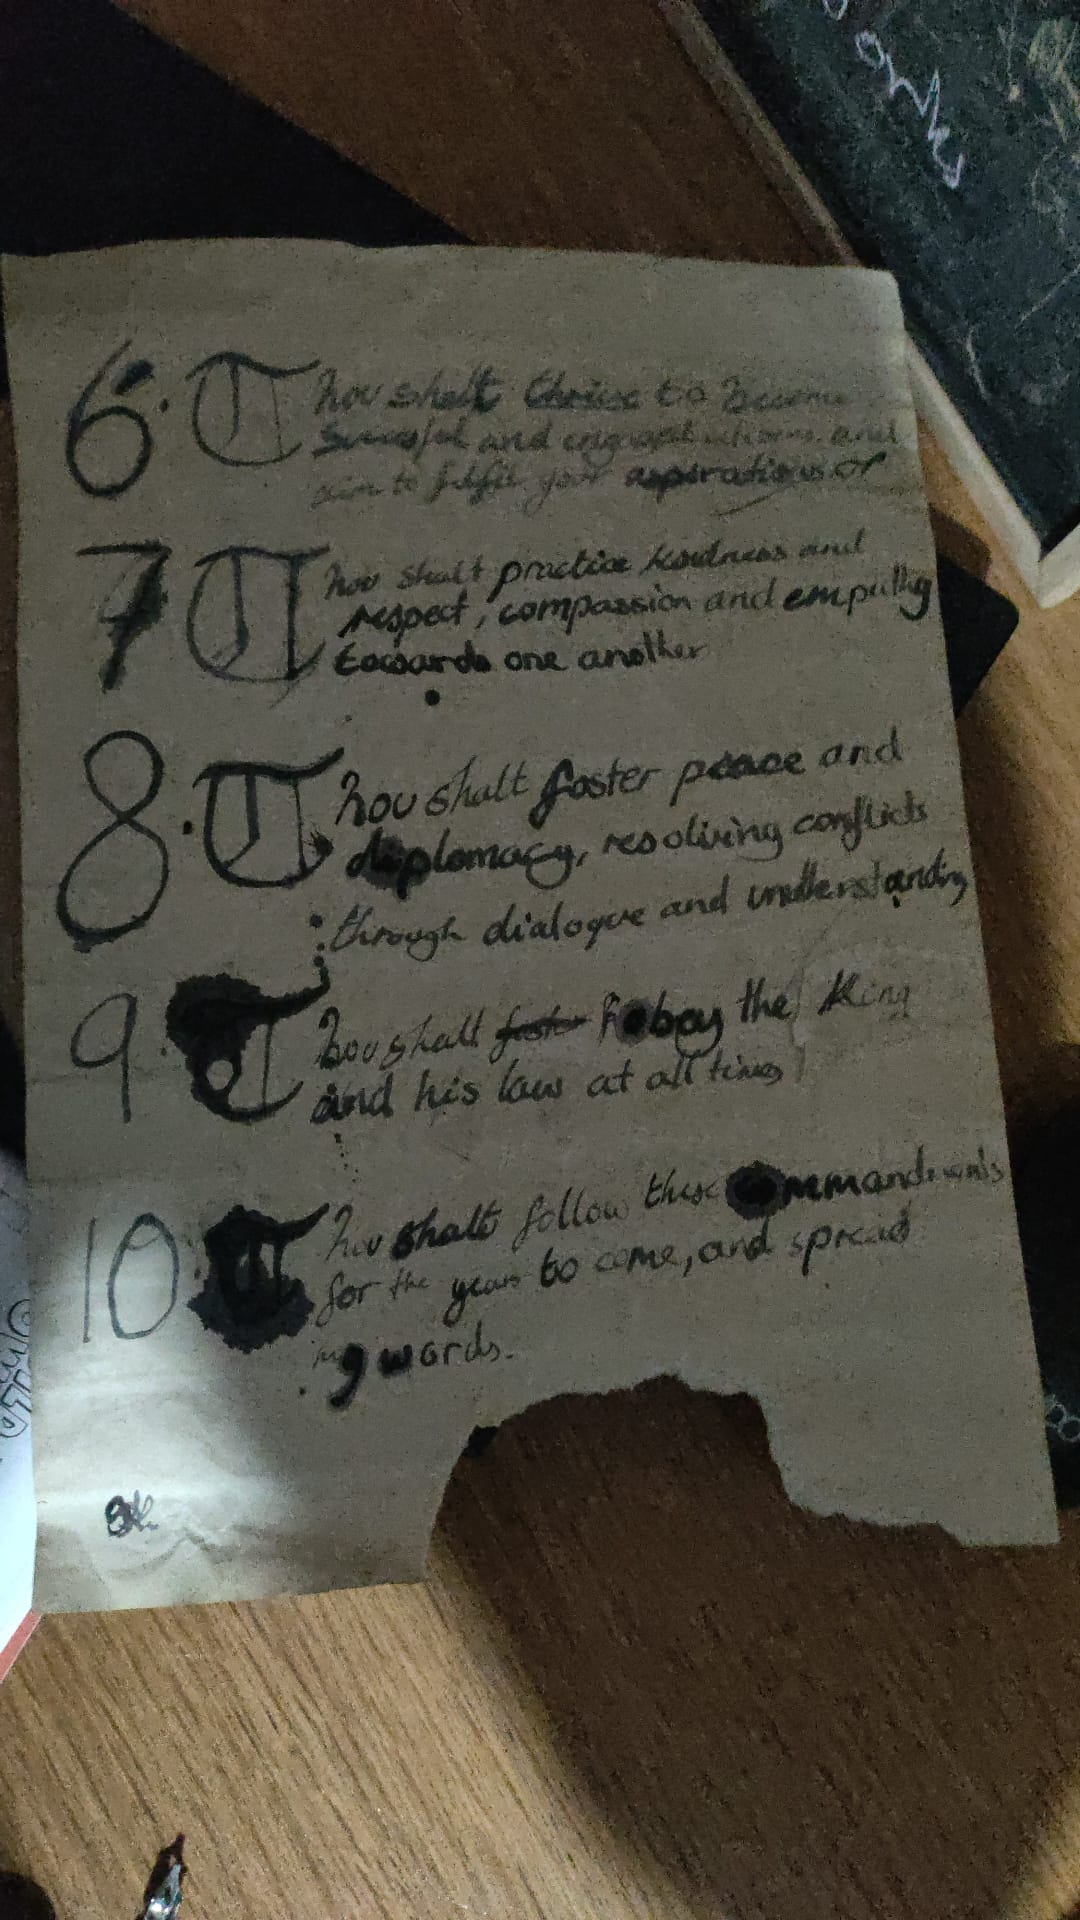 6. Thou shalt thrive to become
Succesful and and
aim to fulfil your aspirations or
7 Thou shalt practice kindness and
respect, compassion and empathy
towards one another
8. Thou shalt foster peace and
diplomacy, resolving conflicts
through dialogue and understanding
9. Thou shall foster obey the King
and his law at all times
10. Thou shalt follow these commandments
for the years to come, and spread
my words.